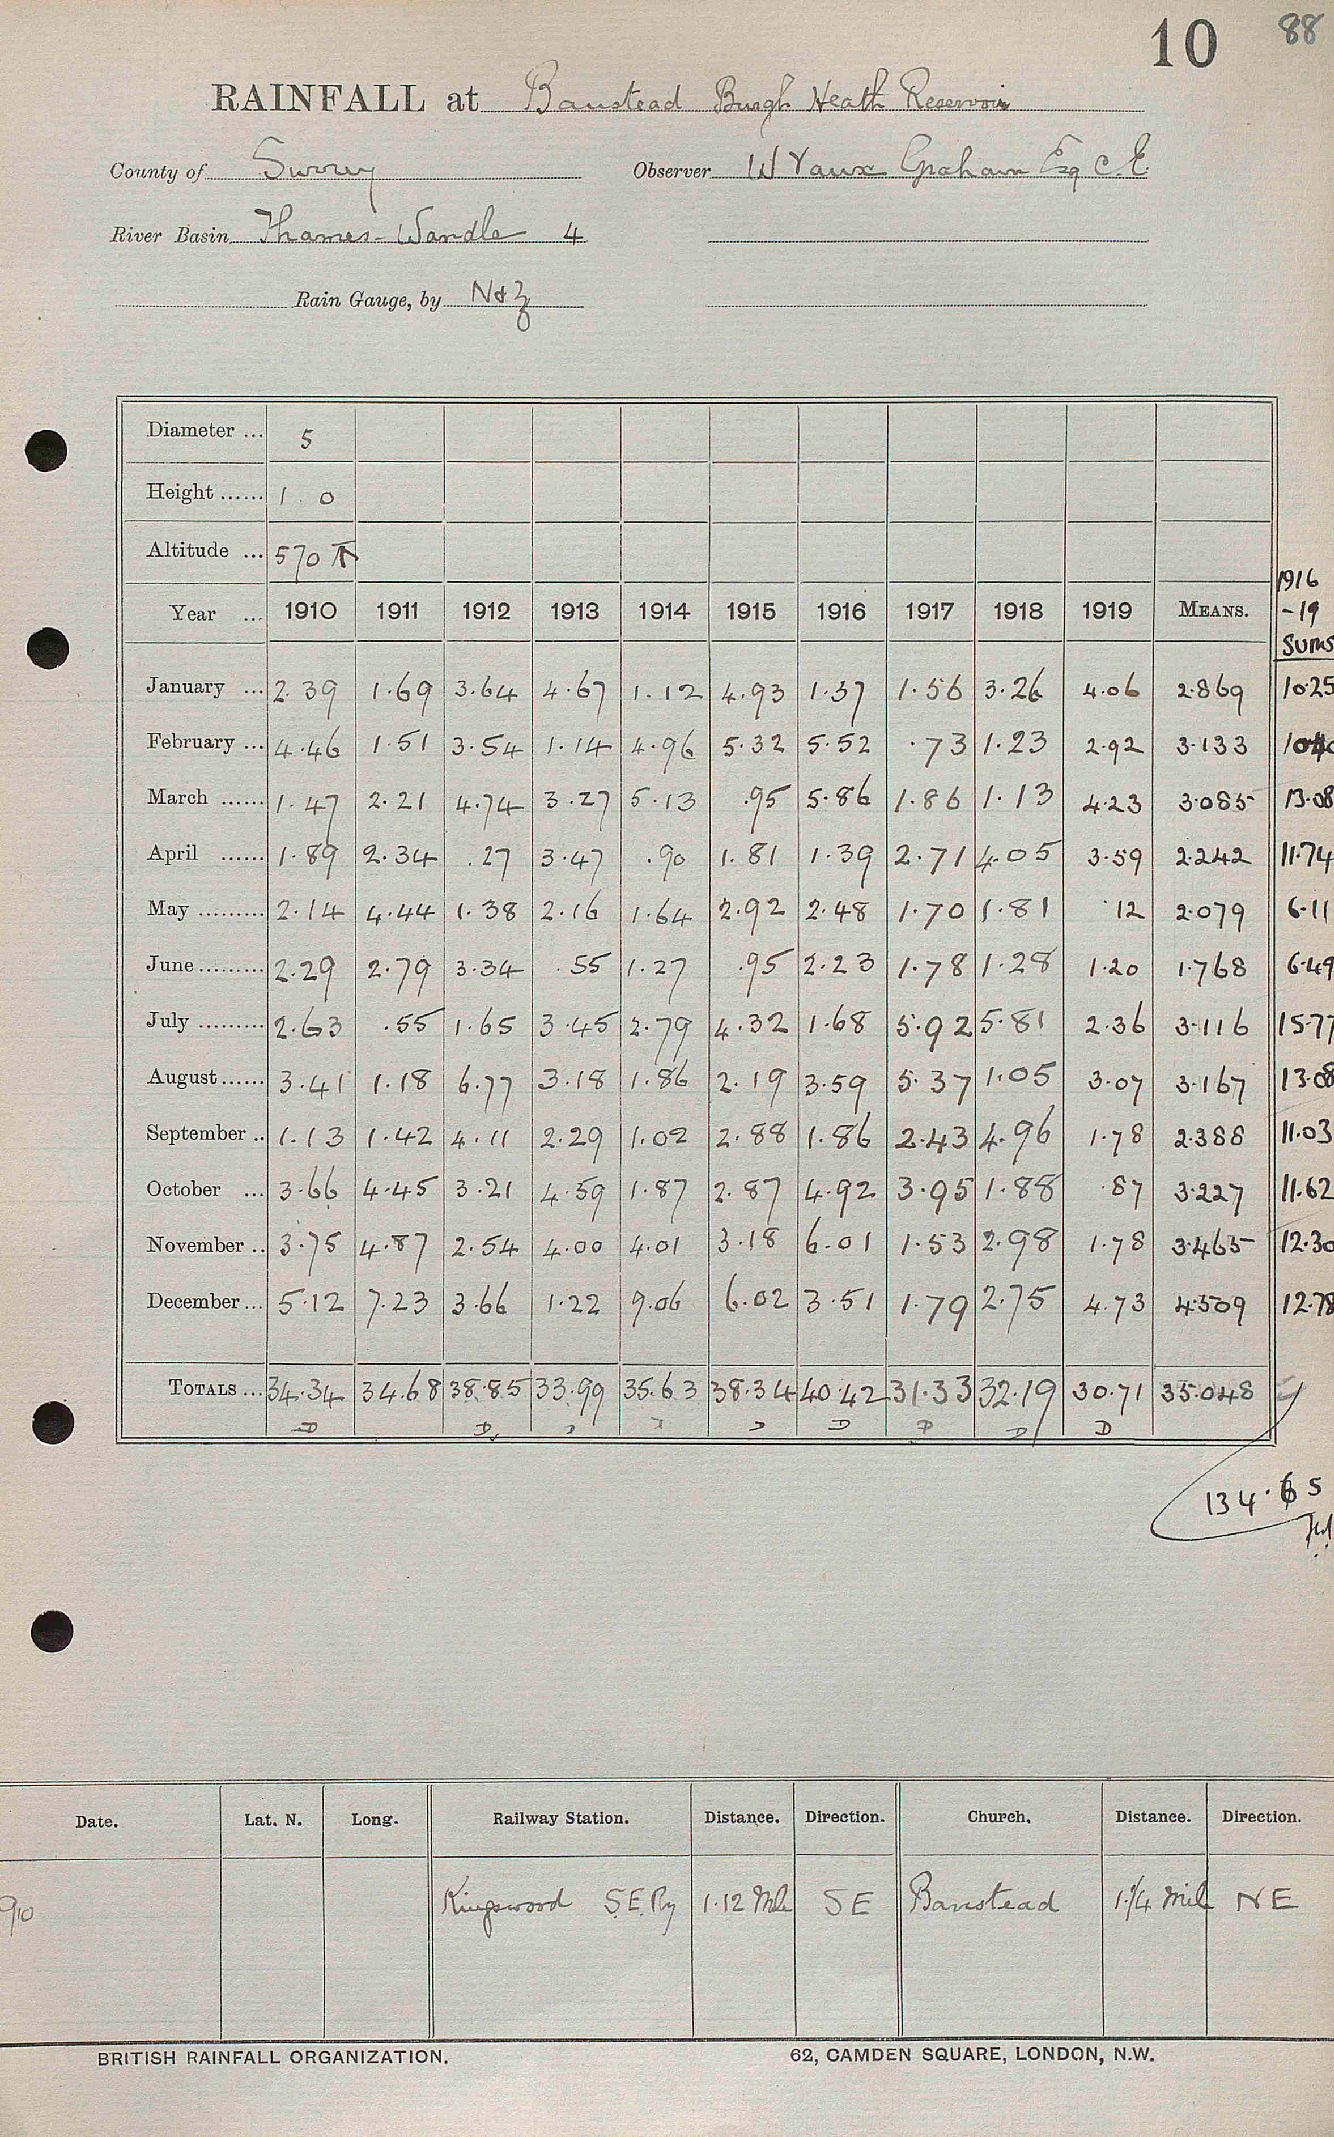 10 88
RAINFALL at Banstead Burgh Heath Reservoir
County of Surrey Observer W Vaux Graham Esq C.E.
River Basin Thames-Wandle 4
Rain Gauge, by N & Z
Diameter ... 5
Height ...... 1 . 0
Altitude ... 570
1916
Year ... 1910 1911 1912 1913 1914 1915 1916 1917 1918 1919 MEANS. -19
Sums
January ... 2.39 1.69 3.64 4.67 1.12 4.93 1.37 1.56 3.26 4.06 2.869 10.25
February ... 4.46 1.51 3.54 1.14 4.96 5.32 5.52 .73 1.23 2.92 3.133 10.40
March ...... 1.47 2.21 4.74 3.27 5.13 .95 5.86 1.86 1.13 4.23 3.085 13.08
April ...... 1.89 2.34 .27 3.47 .90 1.81 1.39 2.71 4.05 3.59 2.242 11.74
May ......... 2.14 4.44 1.38 2.16 1.64 2.92 2.48 1.70 1.81 .12 2.079 6.11
June ......... 2.29 2.79 3.34 .55 1.27 .95 2.23 1.78 1.28 1.20 1.768 6.49
July ......... 2.63 .55 1.65 3.45 2.79 4.32 1.68 5.92 5.81 2.36 3.116 15.77
August ...... 3.41 1.18 6.77 3.18 1.86 2.19 3.59 5.37 1.05 3.07 3.167 13.08
September .. 1.13 1.42 4.11 2.29 1.02 2.88 1.86 2.43 4.96 1.78 2.388 11.03
October ... 3.66 4.45 3.21 4.59 1.87 2.87 4.92 3.95 1.88 .87 3.227 11.62
November .. 3.75 4.87 2.54 4.00 4.01 3.18 6.01 1.53 2.98 1.78 3.465 12.30
December ... 5.12 7.23 3.66 1.22 9.06 6.02 3.51 1.79 2.75 4.73 4.509 12.78
TOTALS ... 34.34 34.68 38.85 33.99 35.63 38.34 40.42 31.33 32.19 30.71 35.048
D D D D D D D D D
134.65
Date. Lat. N. Long. Railway Station. Distance. Direction. Church. Distance. Direction.
910 Kingswood S.E.Ry 1.12 Mile SE Banstead 1 1/4 Mile NE
BRITISH RAINFALL ORGANIZATION. 62, CAMDEN SQUARE, LONDON, N.W.